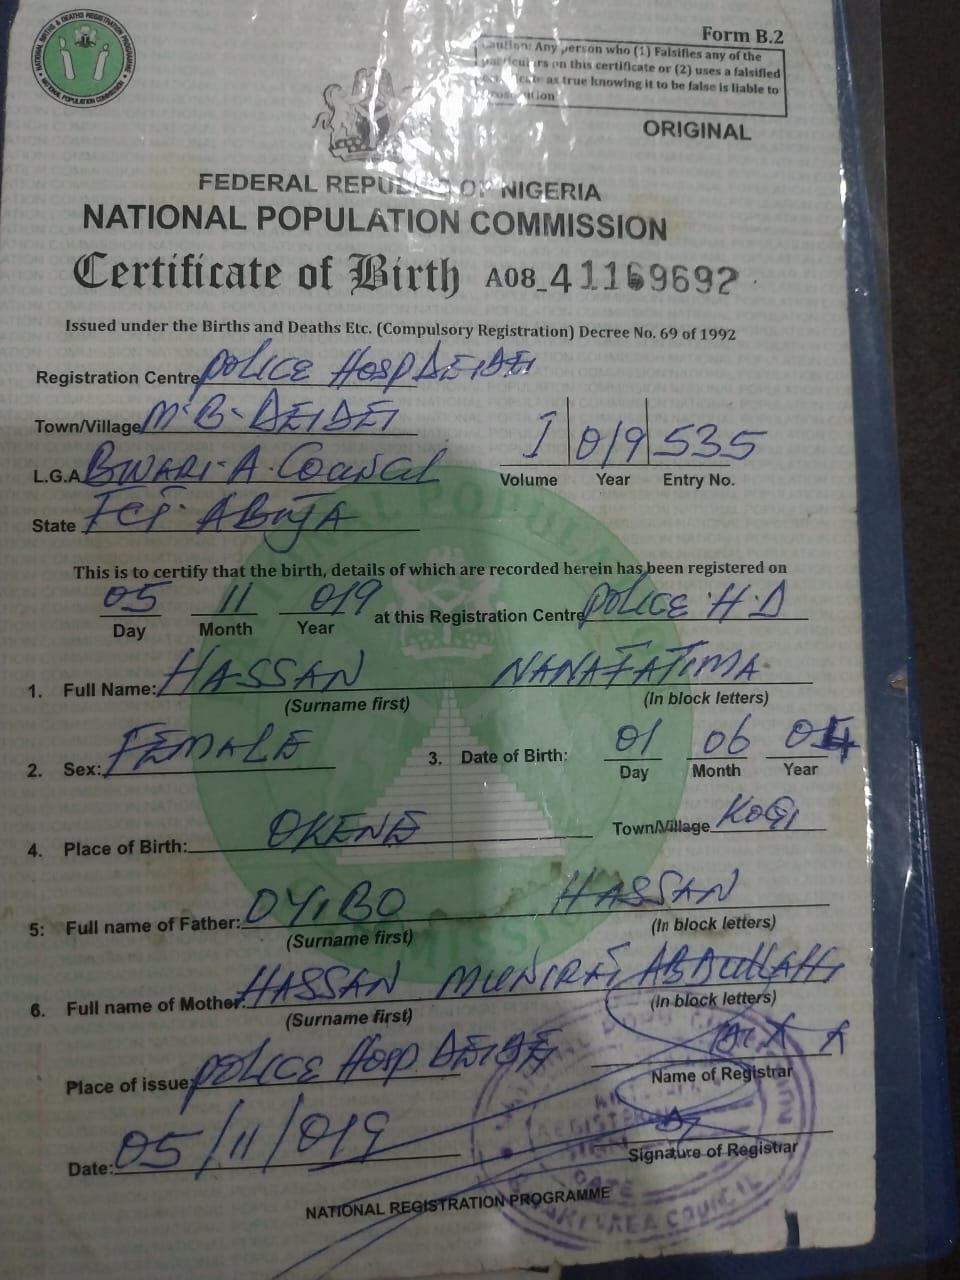 NATIONAL BIRTHS & DEATHS REGISTRATION PROGRAMME
NATIONAL POPULATION COMMISSION
Form B.2
Caution: Any person who (1) Falsifies any of the
particulars on this certificate or (2) uses a falsified
certificate as true knowing it to be false is liable to
prosecution
ORIGINAL
FEDERAL REPUBLIC OF NIGERIA
NATIONAL POPULATION COMMISSION
Certificate of Birth A08_41169692
Issued under the Births and Deaths Etc. (Compulsory Registration) Decree No. 69 of 1992
Registration Centre POLICE HOSP DEIDEI
Town/Village M-B-DEIDEI
I 019 535
L.G.A BWARI-A-COUNCIL
Volume Year Entry No.
State FCT-ABUJA
This is to certify that the birth, details of which are recorded herein has been registered on
05 11 019 at this Registration Centre POLICE H.D
Day Month Year
1. Full Name: HASSAN NANAFATIMA
(Surname first) (In block letters)
2. Sex: FEMALE 3. Date of Birth: 01 06 04
Day Month Year
4. Place of Birth: OKENE Town/Village KOGI
5: Full name of Father: OYIBO HASSAN
(Surname first) (In block letters)
6. Full name of Mother: HASSAN MUNIRAT ABDULLAHI
(Surname first) (In block letters)
Place of issue: POLICE HOSP DEIDEI
Name of Registrar
Date: 05/11/019
Signature of Registrar
NATIONAL REGISTRATION PROGRAMME